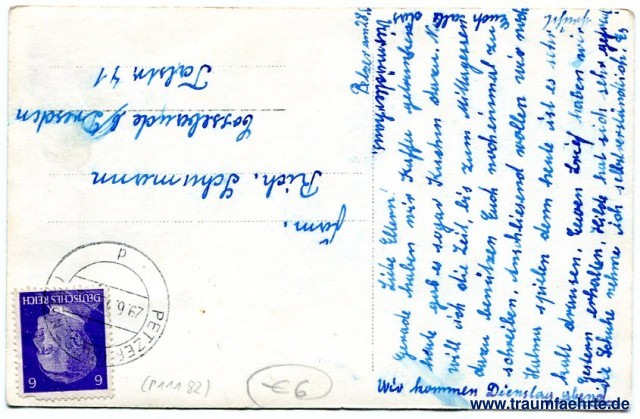 Fam.
Rich. Schumann
Cossebaude b/Dresden
Talstr 41
DEUTSCHES REICH
6 6
PETZER
Liebe Eltern!
Gerade haben wir Kaffee getrunken
heute gab es sogar Kuchen dazu.
will ich die Zeit, bis zum Mittagessen
dazu benützen Euch noch einmal zu
schreiben. Anschliessend wollen wir noch
Halma spielen denn heute ist es sehr
kalt draussen. Euren Brief haben wir
gestern erhalten. Hilde hat sich sehr gefreut
die Schuhe nehme ich selbstverständlich. Es
grüßt
Euch alle das
kommen Dienstag abend
(P111 82)
93
www.traumfaehrte.de